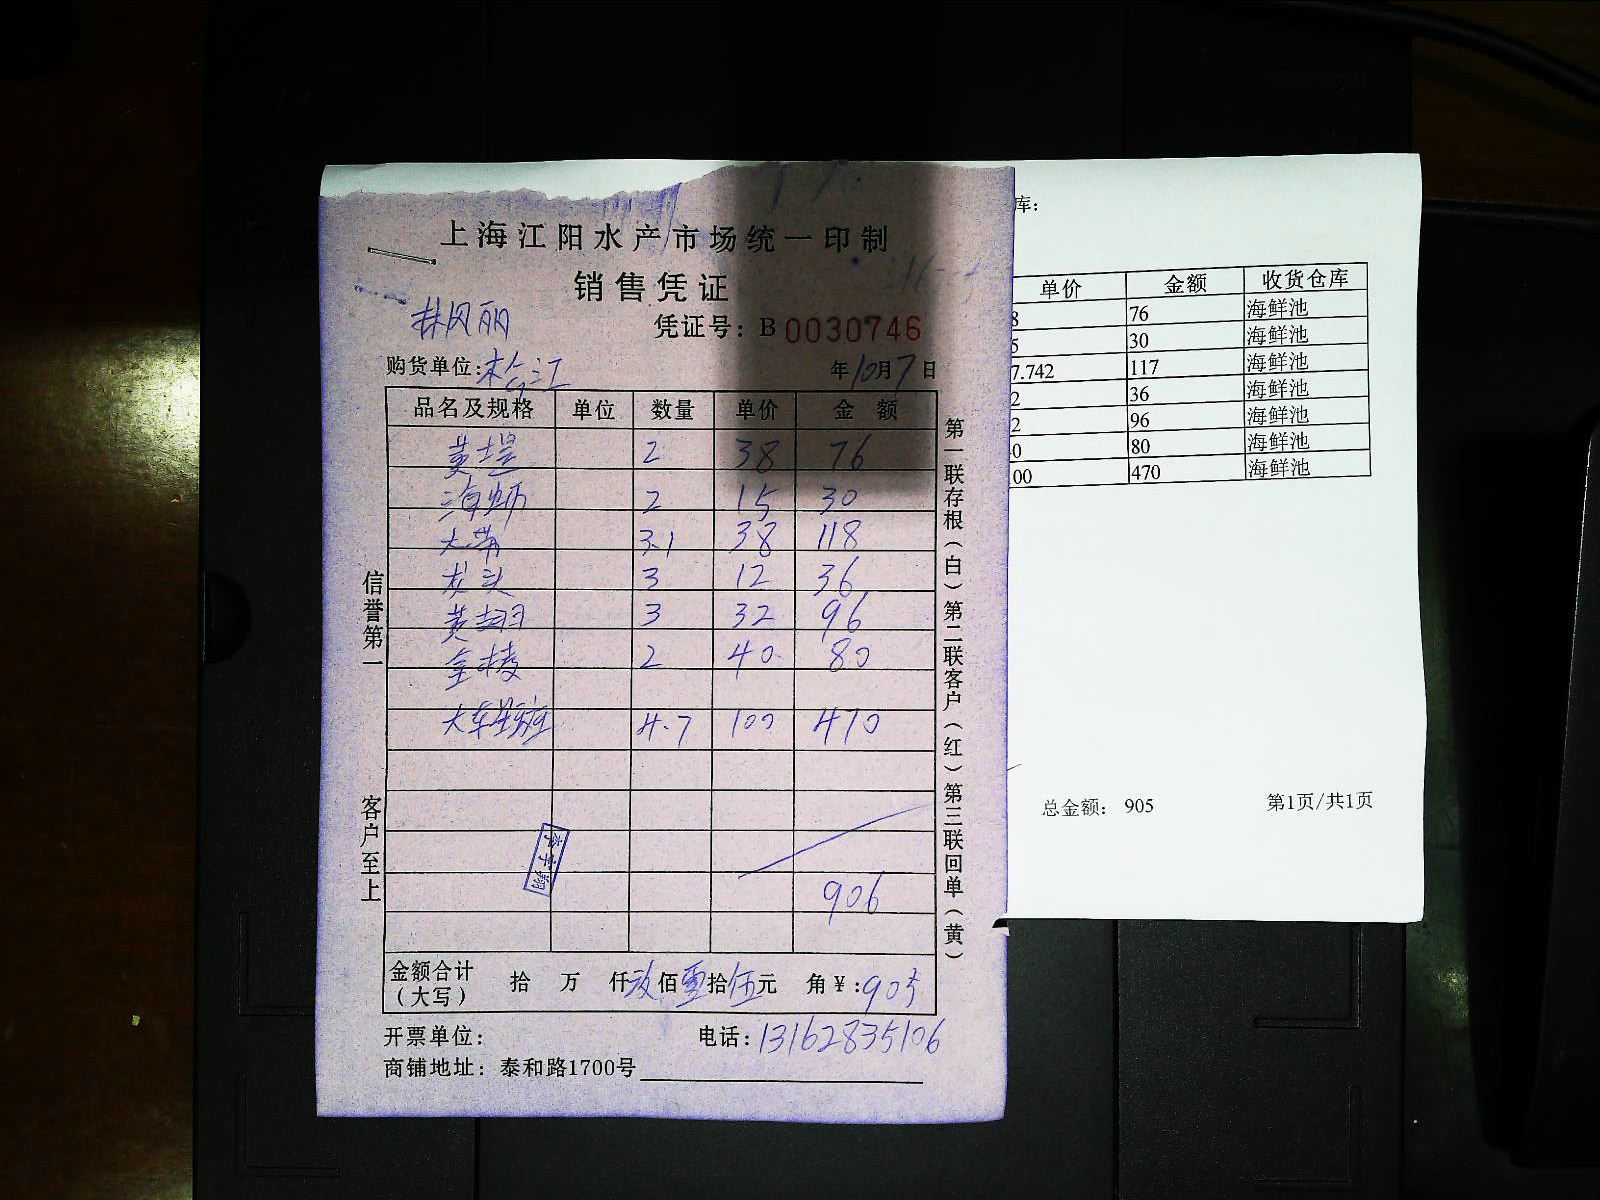 上海江阳水产市场统一印制
销售凭证
林凤丽
凭证号：B 0030746
购货单位：松江 年10月7日
品名及规格 单位 数量 单价 金额
2 38 76
海蛎 2 15 30
大带 3.1 38 118
龙头 3 12 36
黄翅 3 32 96
金棱 2 40 80
4.7 100 470
906
金额合计（大写） 拾 万 仟玖佰零拾伍元 角￥:905
开票单位： 电话：13162835106
商铺地址：泰和路1700号
信誉第一 客户至上
第一联存根（白）第二联客户（红）第三联回单（黄）
李宇翔
库：
单价 金额 收货仓库
8 76 海鲜池
5 30 海鲜池
7.742 117 海鲜池
2 36 海鲜池
2 96 海鲜池
0 80 海鲜池
00 470 海鲜池
总金额： 905 第1页/共1页